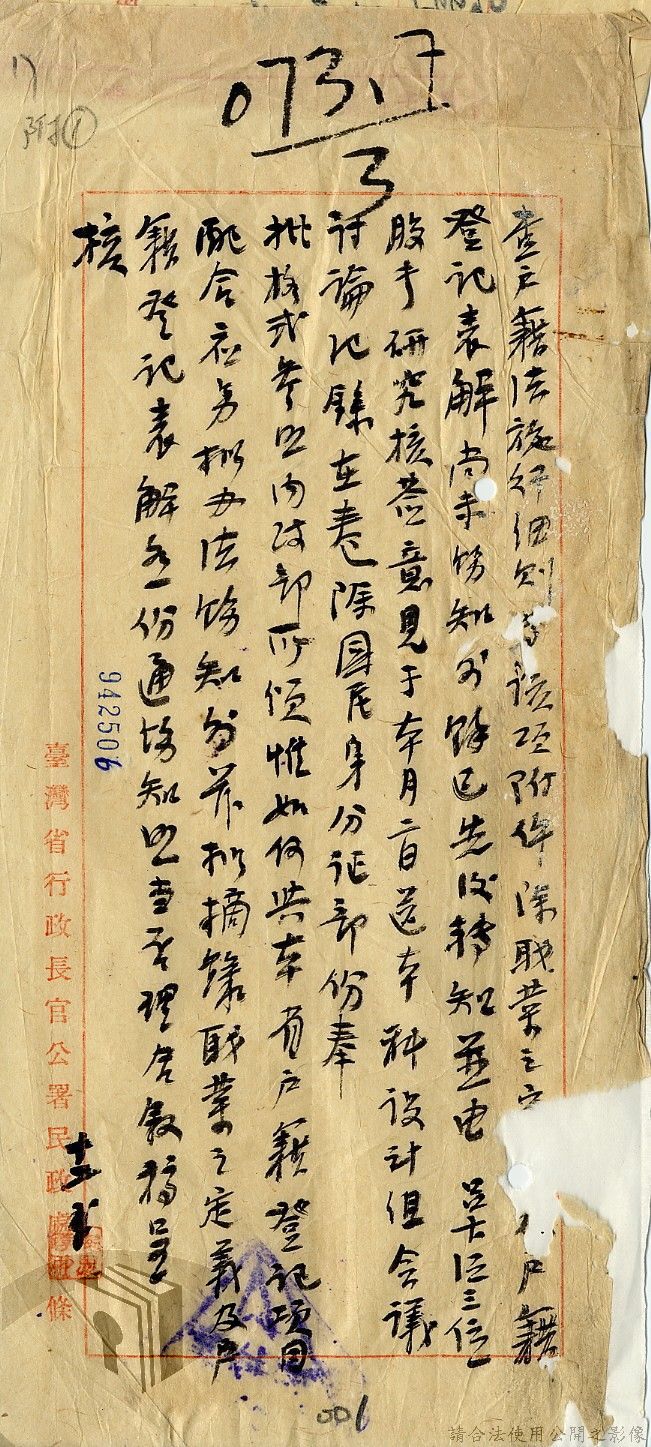 073.17
3
17
附①
查戶籍法施行細則及該項附件除職業之定 戶籍
登記表解尚未飭知外餘已先後轉知並由 呂 三位
股長研究核簽意見于本月 日送本科設計組會議
討論記錄在卷除國民身分証部份奉
批格式參照內政部所頒惟如何與本省戶籍登記項目
配合應另擬办法飭知外茲擬摘錄職業之定義及戶
籍登記表解各一份通飭知照查否理合敘稿呈
核
942506
臺灣省行政長官公署民政處 條
001
請合法使用公開之影像